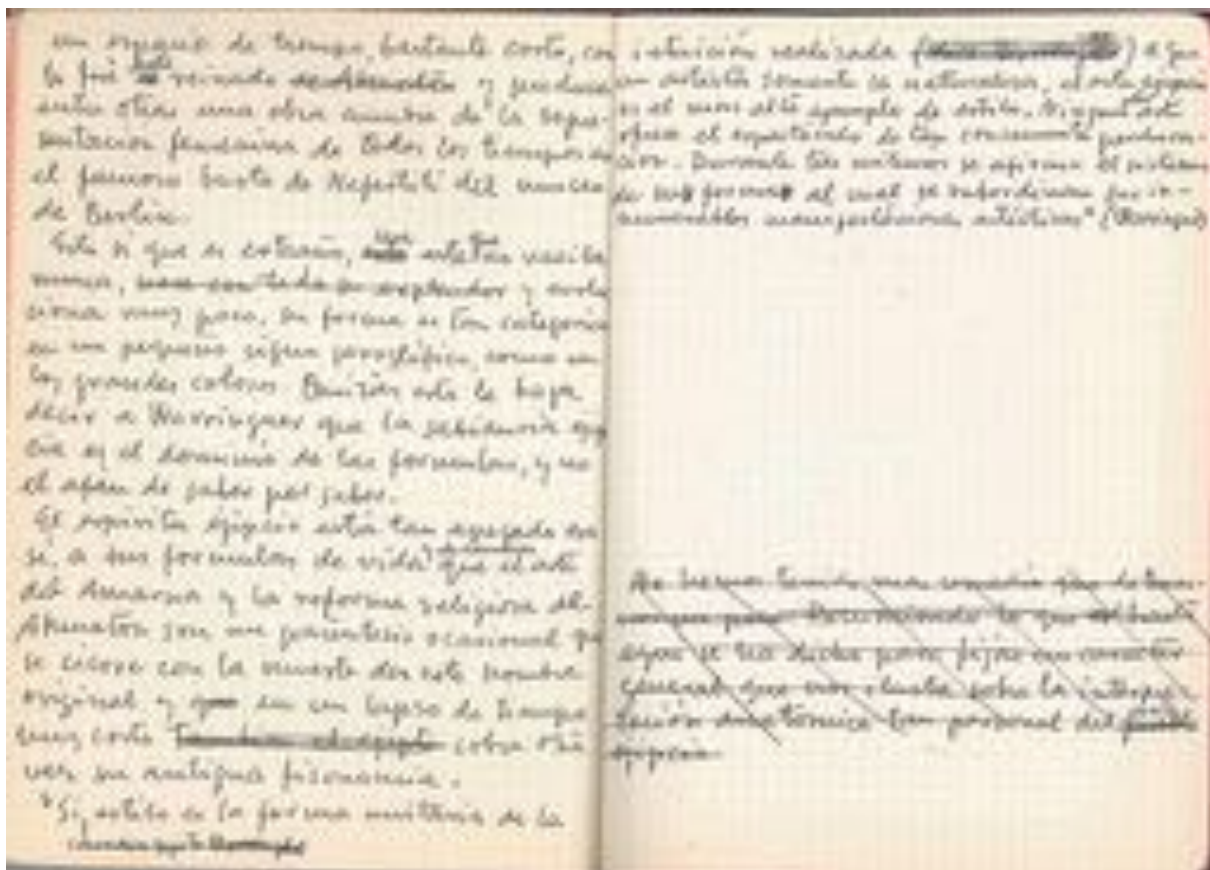 un espacio de tiempo, bastante corto, con
lo fué reinado y produce
entre otras una obra cumbre de la repre-
sentación femenina de todos los tiempos
el famoso busto de Nefertiti del museo
de Berlín.
Esto si que es extraño, este
nunca, y evolu
ciona muy poco, su forma es tan categorica
en un pequeño signo jeroglífico, como en
los grandes colosos. Quizás esto le haga
decir a Worringuer que la sabiduria egip
cia es el dominio de las formulas, y no
el afan de saber por saber.
El espiritu egipcio está tan
si, a sus formulas de vida que el arte
de Amarna y la reforma religiosa de
Akenaton son un parentesis ocasional que
se cierra con la muerte de este hombre
original y que en un lapso de tiempo
muy corto cobra otra
vez su antigua fisonomia.
"Si, estilo es la forma unitaria de la
intuición realizada a que
un artista somete la naturaleza, el arte egipcio
es el mas alto ejemplo de estilo. Ningun otro
ofrece el espectaculo de tan consecuente
Durante tres milenios se afirma el sistema
de sus formas al cual se subordinan sus in-
numerables manifestaciones artísticas" (Worringer)
No hemos tenido mas remedio que
Resumiendo lo que
aqui se ha dicho para fijar un caracter
general que nos sobre la interpre-
tación anatómica tan personal del
egipcio.